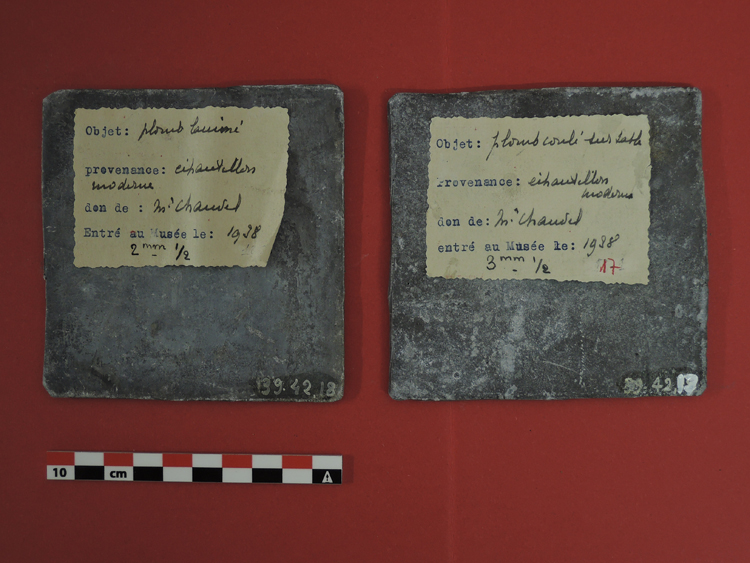 Objet: plomb laminé
provenance: échantillon
moderne
don de : Mr Chaudel
Entré au Musée le: 1938
2 mm 1/2
39.42.18
Objet: plomb coulé sur sable
Provenance: échantillon
moderne
don de: Mr Chaudel
entré au Musée le: 1938
3 mm 1/2
17
39.42.17
10 cm